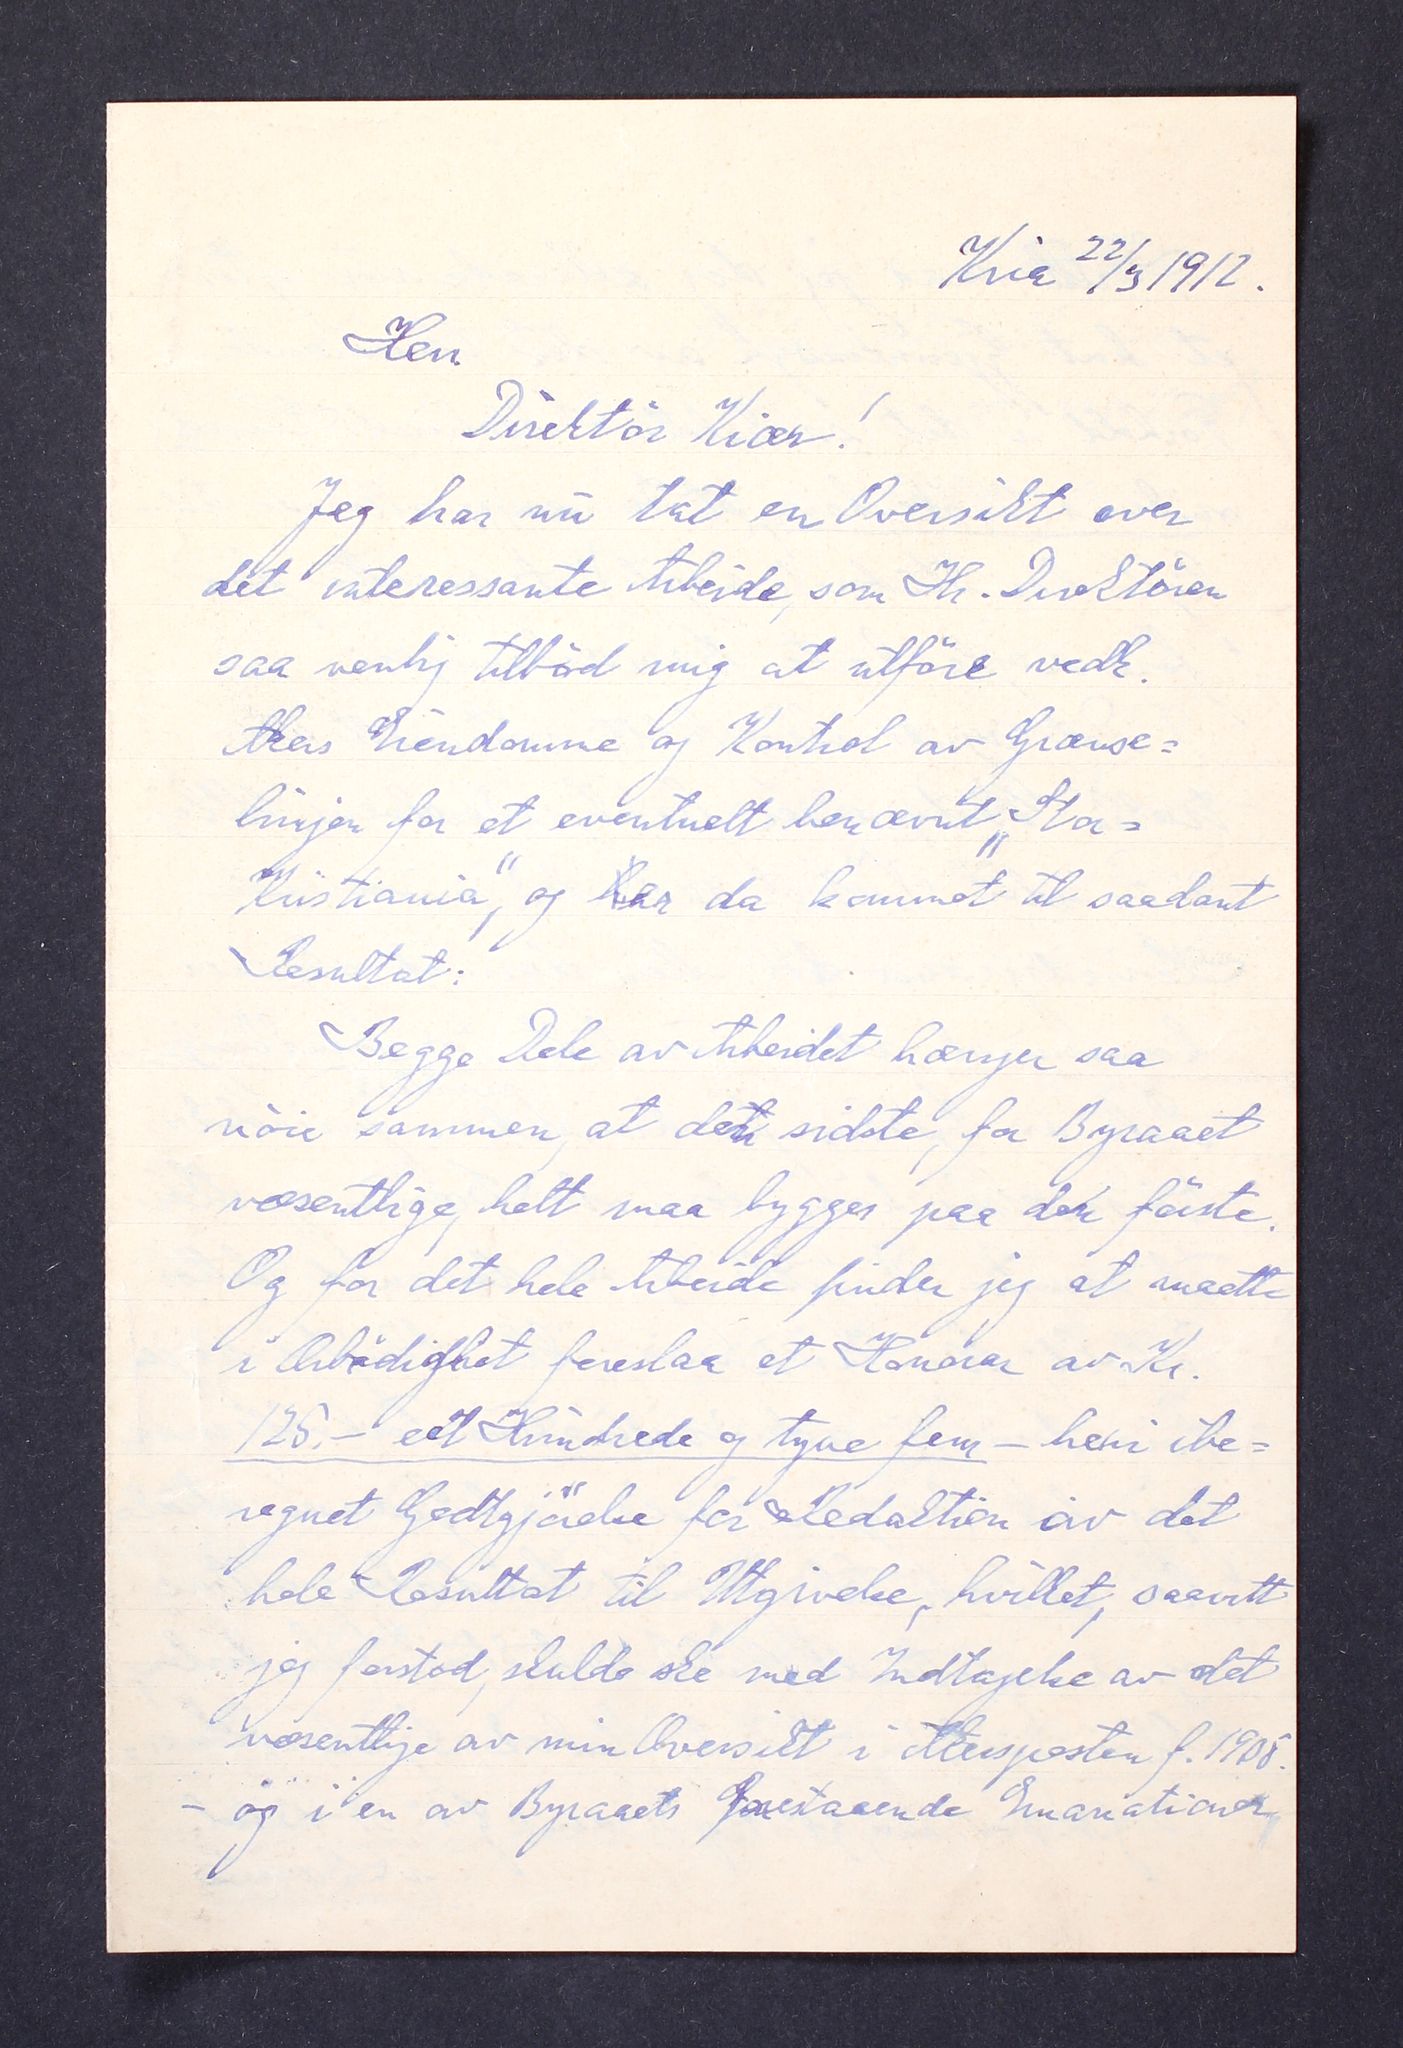 Kria 22/3 1912.
Herr
Direktör Kiær!
Jeg har nu tat en Oversikt over
det interessante Arbeide, som Hr. Direktören
saa venlig tilböd mig at utföre vedk.
Akers Eiendomme og Kontrol av Grænse=
linjen for et eventuelt benævnt „Stor=
Kristiania", og har da kommet til saadant
Resultat:
Begge Dele av Arbeidet hænger saa
nöie sammen, at den sidste, for Byraaet
væsentlige, helt maa bygges paa den förste.
Og for det hele Arbeide finder jeg at maatte
i Ærbödighet foreslaa et Honorar av Kr.
125.- ett Hundrede og tyve fem - heri ibe=
regnet Godtgjörelse for Redaktion av det
hele Resultat til Utgivelse, hvilket, saavitt
jeg forstod, skulde ske med Indtagelse av det
væsentlige av min Oversikt i Akersposten f. 1908.
- og i en av Byraaets forestaaende Emanationer,